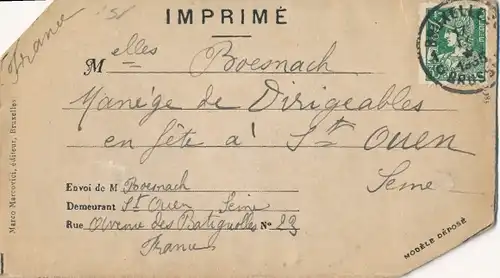 IMPRIMÉ
France
Melles Boesnach
Manège de Dirigeables
en fête à St Ouen
Seine
Envoi de M Boesnach
Demeurant St Ouen Seine
Rue Avenue des Batignolles No 23
France
MODÈLE DÉPOSÉ
Marco Marcovici, éditeur, Bruxelles